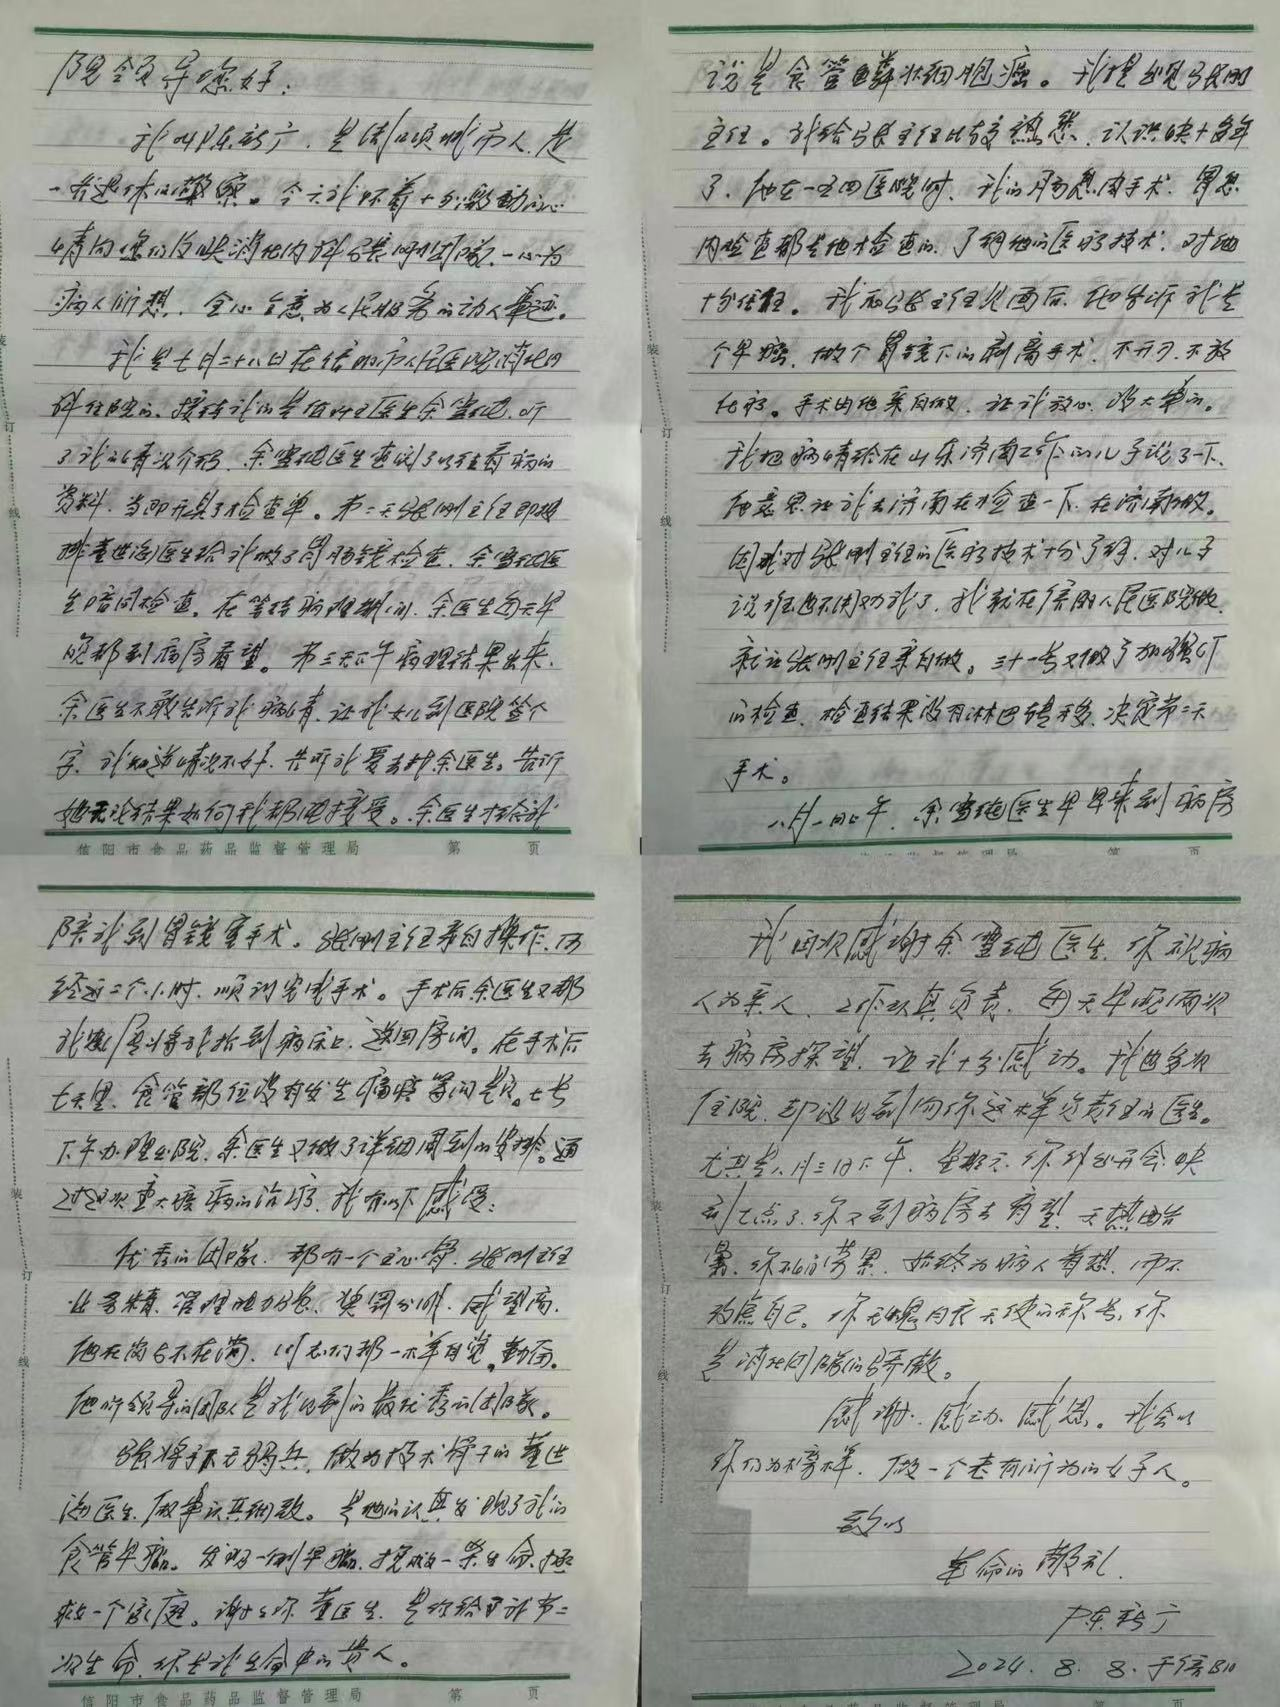 院领导您好：
我叫陈新广，是信阳项城市人，是
一名退休的警察。今天我怀着十分激动的心
情向您们反映消化内科张刚团队，一心为
病人所想，全心全意为人民服务的动人事迹。
我是七月二十八日在信阳市人民医院消化内
科住院的，接待我的是值班医生余雪纯，听
了我的情况介绍，余雪纯医生查阅了以往看病的
资料，当即开具了检查单。第二天张刚主任即安
排董进海医生给我做了胃肠镜检查，余雪纯医
生陪同检查。在等待病理期间，余医生每天早
晚都到病房看望。第三天下午病理结果出来，
余医生不敢告诉我病情，让我女儿到医院签个
字，我知道情况不好，告诉我要去找余医生。告诉
她无论结果如何我都能接受。余医生才给我
信阳市食品药品监督管理局 第 页
说是食管鳞状细胞癌。我提出见张刚
主任。我给张主任比较熟悉，认识快十多年
了，他在一五四医院时，我的肠息肉手术，胃息
肉检查都是他检查的，了解他的医疗技术，对他
十分信任。我和张主任见面后，他告诉我是
个早癌，做个胃镜下的剥离手术，不开刀，不放
化疗。手术由他亲自做，让我放心，没大事的。
我把病情给在山东济南工作的儿子说了一下，
他意思让我去济南在检查一下，在济南做。
因我对张刚主任的医疗技术十分了解，对儿子
说谁也不用劝我了，我就在信阳人民医院做，
就让张刚主任亲自做。三十一号又做了加强CT
的检查，检查结果没有淋巴转移，决定第二天
手术。
八月一日上午，余雪纯医生早早来到病房
陪我到胃镜室手术。张刚主任亲自操作，历
经近二个小时，顺利完成手术。手术后余医生又帮
我家属将我抬到病床上，送回房间。在手术后
七天里，食管部位没有发生痛疼等问题。七号
下午办理出院，余医生又做了详细周到的安排。通
过这次重大疾病的治疗，我有以下感受：
优秀的团队，都有一个主心骨，张刚主任
业务精，管理能力强，奖罚分明，威望高，
他在岗与不在岗，同志们都一样自觉，勤奋。
他所领导的团队是我见到的最优秀的团队。
强将手下无弱兵，做为技术骨干的董进
海医生，做事认真细致。是他的认真发现了我的
食管早癌。发现一例早癌，挽救一条生命，拯
救一个家庭。谢谢你董医生，是你给予我第二
次生命，你是我生命中的贵人。
信阳市食品药品监督管理局 第 页
我再次感谢余雪纯医生，你视病
人为亲人，工作认真负责，每天早晚两次
去病房探望，让我十分感动。我曾多次
住院，却没见到向你这样负责任的医生。
尤其是八月三日下午，星期六，你外出开会，快
到七点了，你又到病房去看望，天热
暑，你不怕劳累，始终为病人着想，而不
考虑自己。你无愧白衣天使的称号，你
是消化团队的骄傲。
感谢，感动，感恩。我会以
你们为榜样，做一个老有所为的女子人。
致以
革命的敬礼，
陈新广
2024.8.8.于信阳